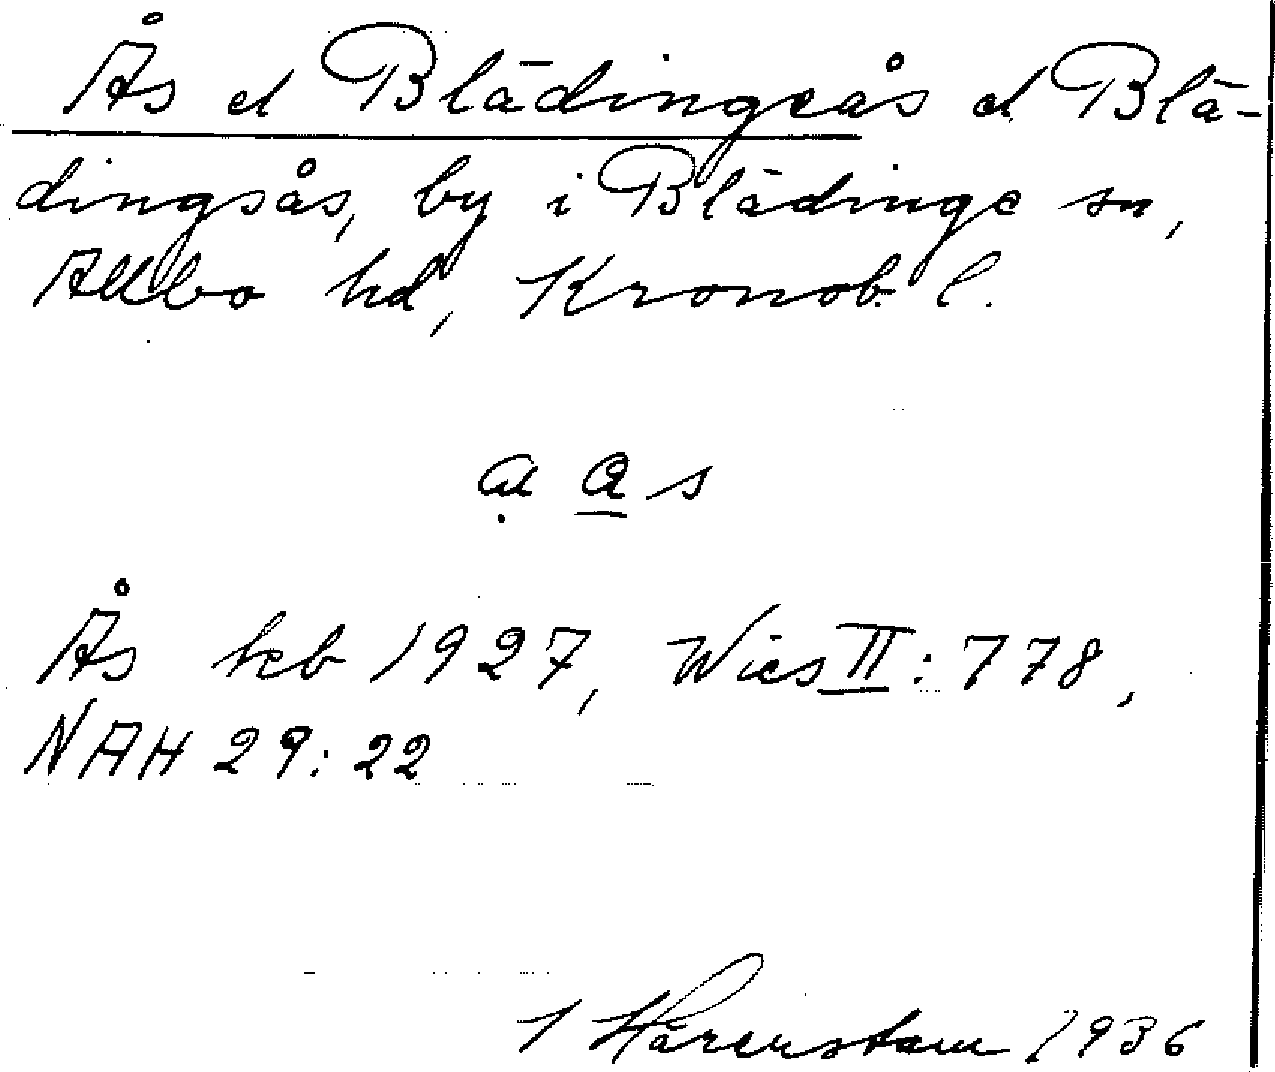 Ås el Blädingeås el Blä-
dingsås, by i Blädinge sn,
Allbo hd, Kronob. l.
a a s
Ås kcb 1927, Wies II: 778,
NAH 29: 22
Härenstam 1936